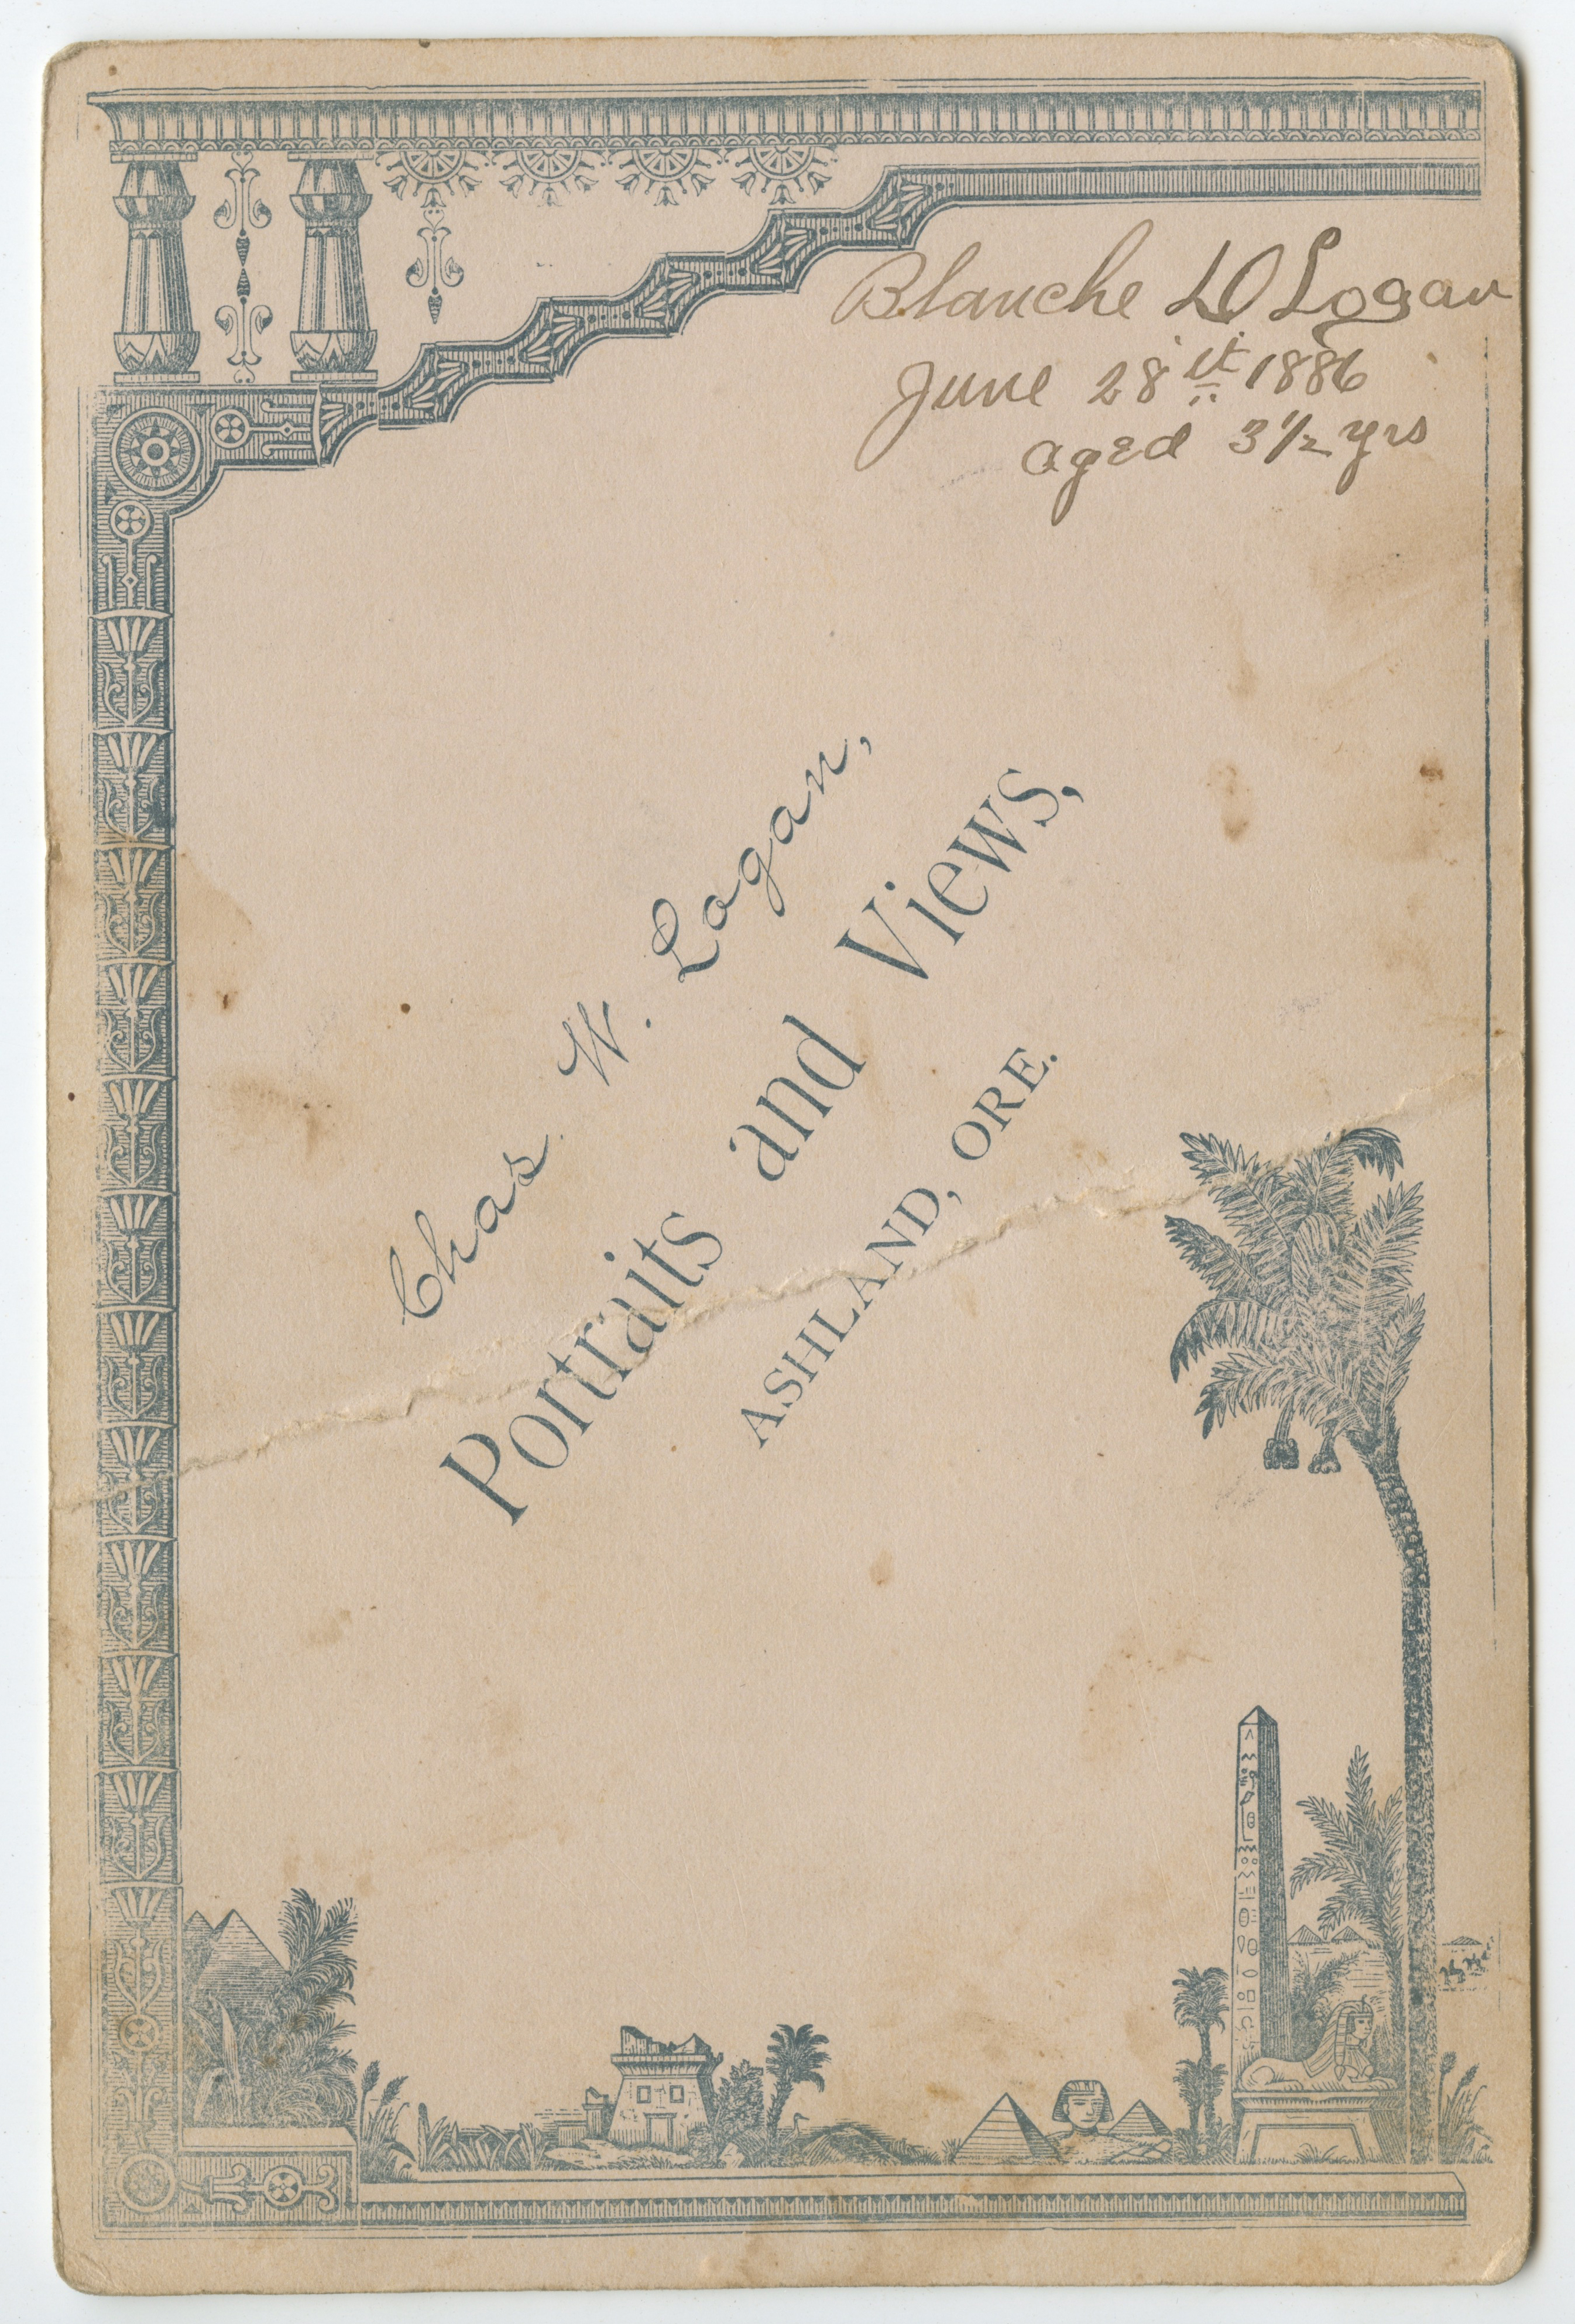 Blanche LO Logan
June 28 st 1886
aged 3 1/2 yrs
Chas. W. Logan,
Portraits and Views,
ASHLAND, ORE.